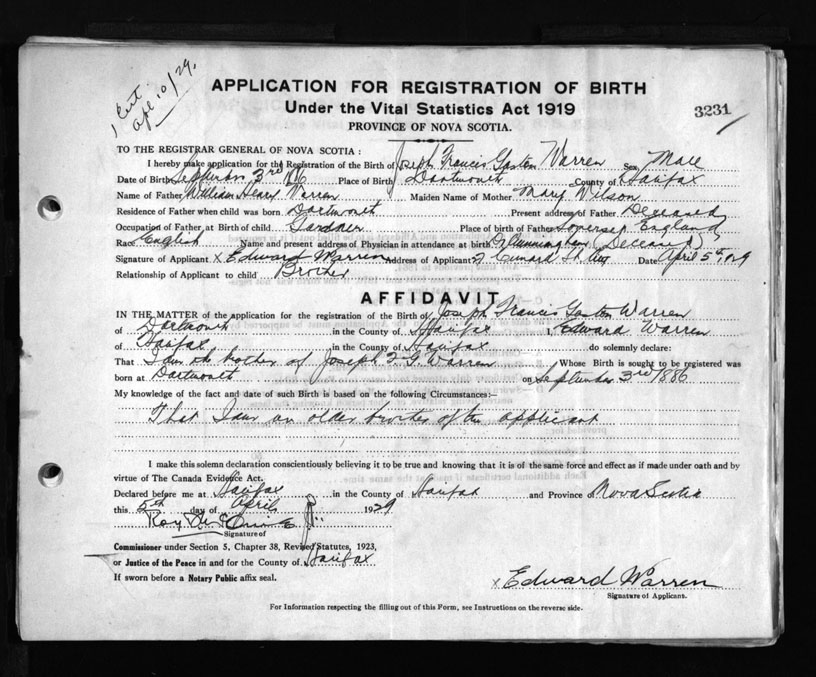 1 Cert.
Apl. 10/29.
APPLICATION FOR REGISTRATION OF BIRTH
Under the Vital Statistics Act 1919
3231
PROVINCE OF NOVA SCOTIA.
TO THE REGISTRAR GENERAL OF NOVA SCOTIA :
I hereby make application for the Registration of the Birth of Joseph Francis Gaston Warren Sex Male
Date of Birth September 3rd Place of Birth Dartmouth County of Halifax
Name of Father William Warren Maiden Name of Mother Mary Wilson
Residence of Father when child was born Dartmouth Present address of Father Deceased
Occupation of Father at Birth of child Gardner Place of birth of Father Somerset England
Race English Name and present address of Physician in attendance at birth Cunningham (Deceased)
Signature of Applicant x Edward Warren Address of Applicant Cunard St. Date April 5th
Relationship of Applicant to child Brother
AFFIDAVIT
IN THE MATTER of the application for the registration of the Birth of Joseph Francis Gaston Warren
of Dartmouth in the County of Halifax I, Edward Warren
of Halifax in the County of Halifax do solemnly declare:
That I am the brother of Joseph F. G. Warren Whose Birth is sought to be registered was
born at Dartmouth on September 3rd 1886
My knowledge of the fact and date of such Birth is based on the following Circumstances:—
That I am an older brother of the applicant
I make this solemn declaration conscientiously believing it to be true and knowing that it is of the same force and effect as if made under oath and by
virtue of The Canada Evidence Act.
Declared before me at Halifax in the County of Halifax and Province Nova Scotia
this 5th day of April 1929
Roy
Signature of
Commissioner under Section 5, Chapter 38, Revised Statutes, 1923,
or Justice of the Peace in and for the County of Halifax
If sworn before a Notary Public affix seal.
x Edward Warren
Signature of Applicant.
For Information respecting the filling out of this Form, see Instructions on the reverse side.